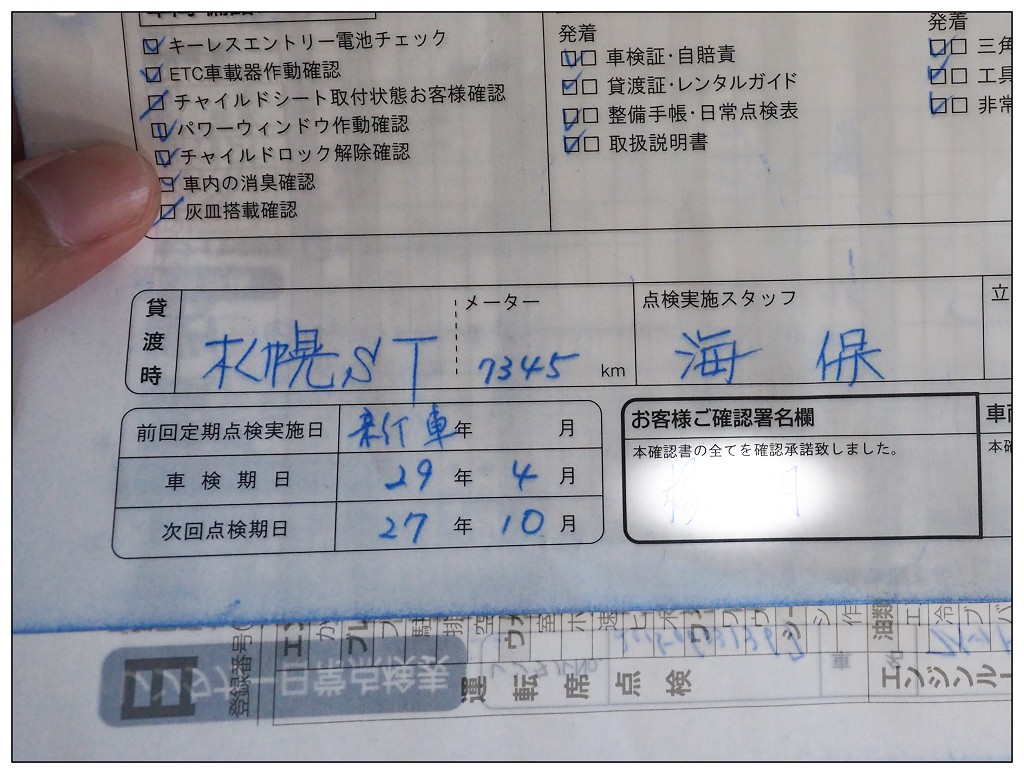 キーレスエントリー電池チェック
ETC車載器作動確認
チャイルドシート取付状態お客様確認
パワーウィンドウ作動確認
チャイルドロック解除確認
車内の消臭確認
灰皿搭載確認
発着
車検証・自賠責
貸渡証・レンタルガイド
整備手帳・日常点検表
取扱説明書
発着
三角
工具
非常
貸渡時
札幌ST
メーター
7345 km
点検実施スタッフ
海 保
立
前回定期点検実施日 新行車年 月
車検期日 29年 4月
次回点検期日 27年 10月
お客様ご確認署名欄
本確認書の全てを確認承諾致しました。
車両
本確
登録番号
レンタカー日常点検表
運転席点検
エンジンルー
油類